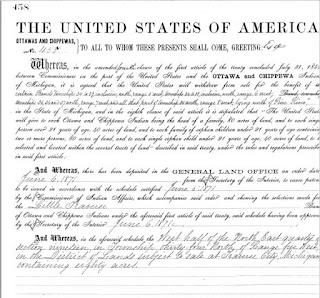 458
THE UNITED STATES OF AMERICA
OTTAWAS AND CHIPPEWAS,
No. 458 TO ALL TO WHOM THESE PRESENTS SHALL COME, GREETING:
Whereas, in the amended fourth clause of the first article of the treaty concluded July 31, 1855
between Commissioners on the part of the United States and the OTTAWA and CHIPPEWA Indians
of Michigan, it is agreed that the United States will withdraw from sale for the benefit of
in the State of Michigan, and in the eighth clause of said article it is stipulated that "The United States
will give to each Ottawa and Chippewa Indian being the head of a family, 80 acres of land, and to each single
person over 21 years of age, 40 acres of land, and to each family of orphan children under 21 years of age containing
two or more persons, 80 acres of land, and to each single orphan child under 21 years of age, 40 acres of land, to be
selected and located within the several tracts of land" described in said treaty, under the rules and regulations prescribed
in said first article.
And Whereas, there has been deposited in the GENERAL LAND OFFICE an order dated
June 6, 1871, of the Secretary of the Interior, to cause patents
to be issued in accordance with the schedule certified June 5, 1871
by the Commissioner of Indian Affairs, which accompanies said order and showing the selections made for
the Band
of Ottawa and Chippewa Indians under the aforesaid first article of said treaty, said schedule having been approved
by the Secretary of the Interior June 6, 1871
And Whereas, in the aforesaid schedule the West half of the North East quarter of
section nineteen, in Township thirty four North, of Range five West
in the District of Lands subject to sale at Traverse City, Michigan
containing eighty acres.